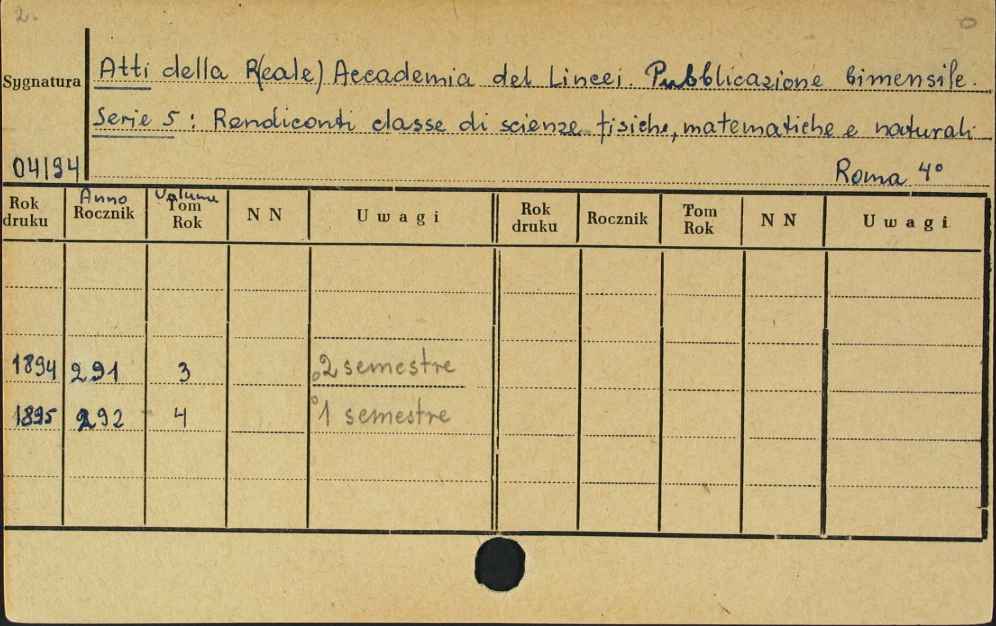 2.
Sygnatura Atti della R(eale) Accademia dei Lincei. Pubblicazione bimensile.
Serje 5: Rendiconti classe di scienze fisiche, matematiche e naturali
04194 Roma 4°
Rok druku Anno Rocznik Volume Tom Rok N N Uwagi Rok druku Rocznik Tom Rok N N Uwagi
1894 291 3 2 semestre
1895 292 4 1 semestre